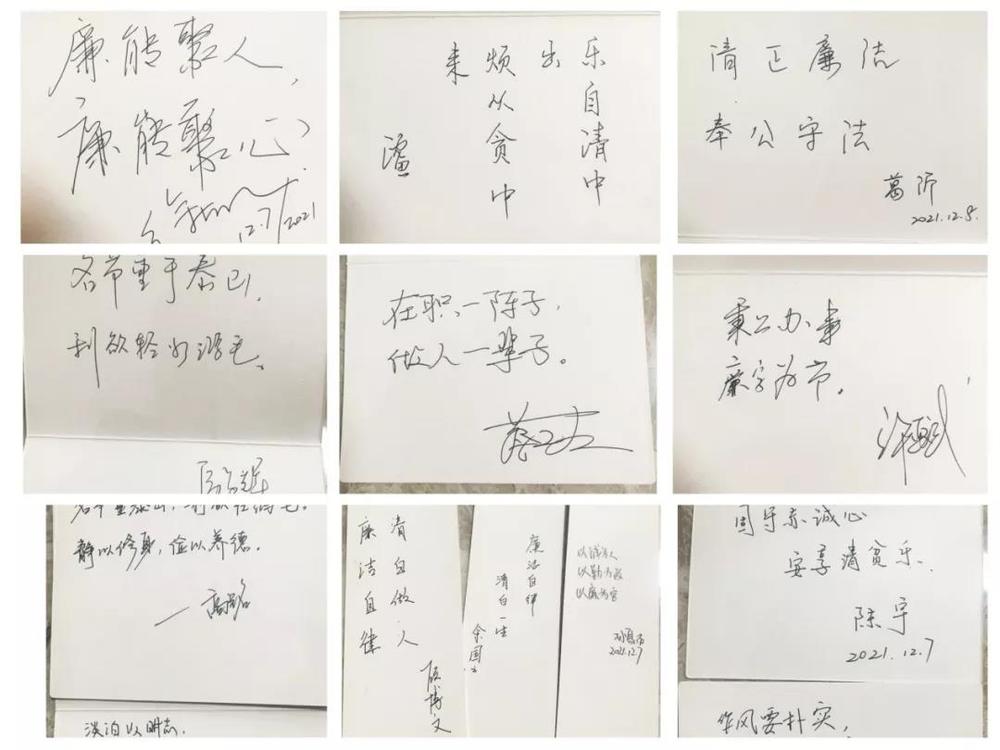 廉能聚人,
廉能聚心
12.7/2021
乐自清中
出
烦从贪中
来
清正廉洁
奉公守法
葛沂
2021.12.8.
名节重于泰山,
利欲轻如鸿毛。
在职一阵子,
做人一辈子。
秉公办事
廉字为节。
静以修身,俭以养德。
淡泊以明志,
清白做人
廉洁自律
顾博文
廉洁自律
清白一生
以诚为人
以勤为政
以廉为官
2021.12.7
固守赤诚心
安享清贫乐.
陈宇
2021.12.7
作风要朴实,